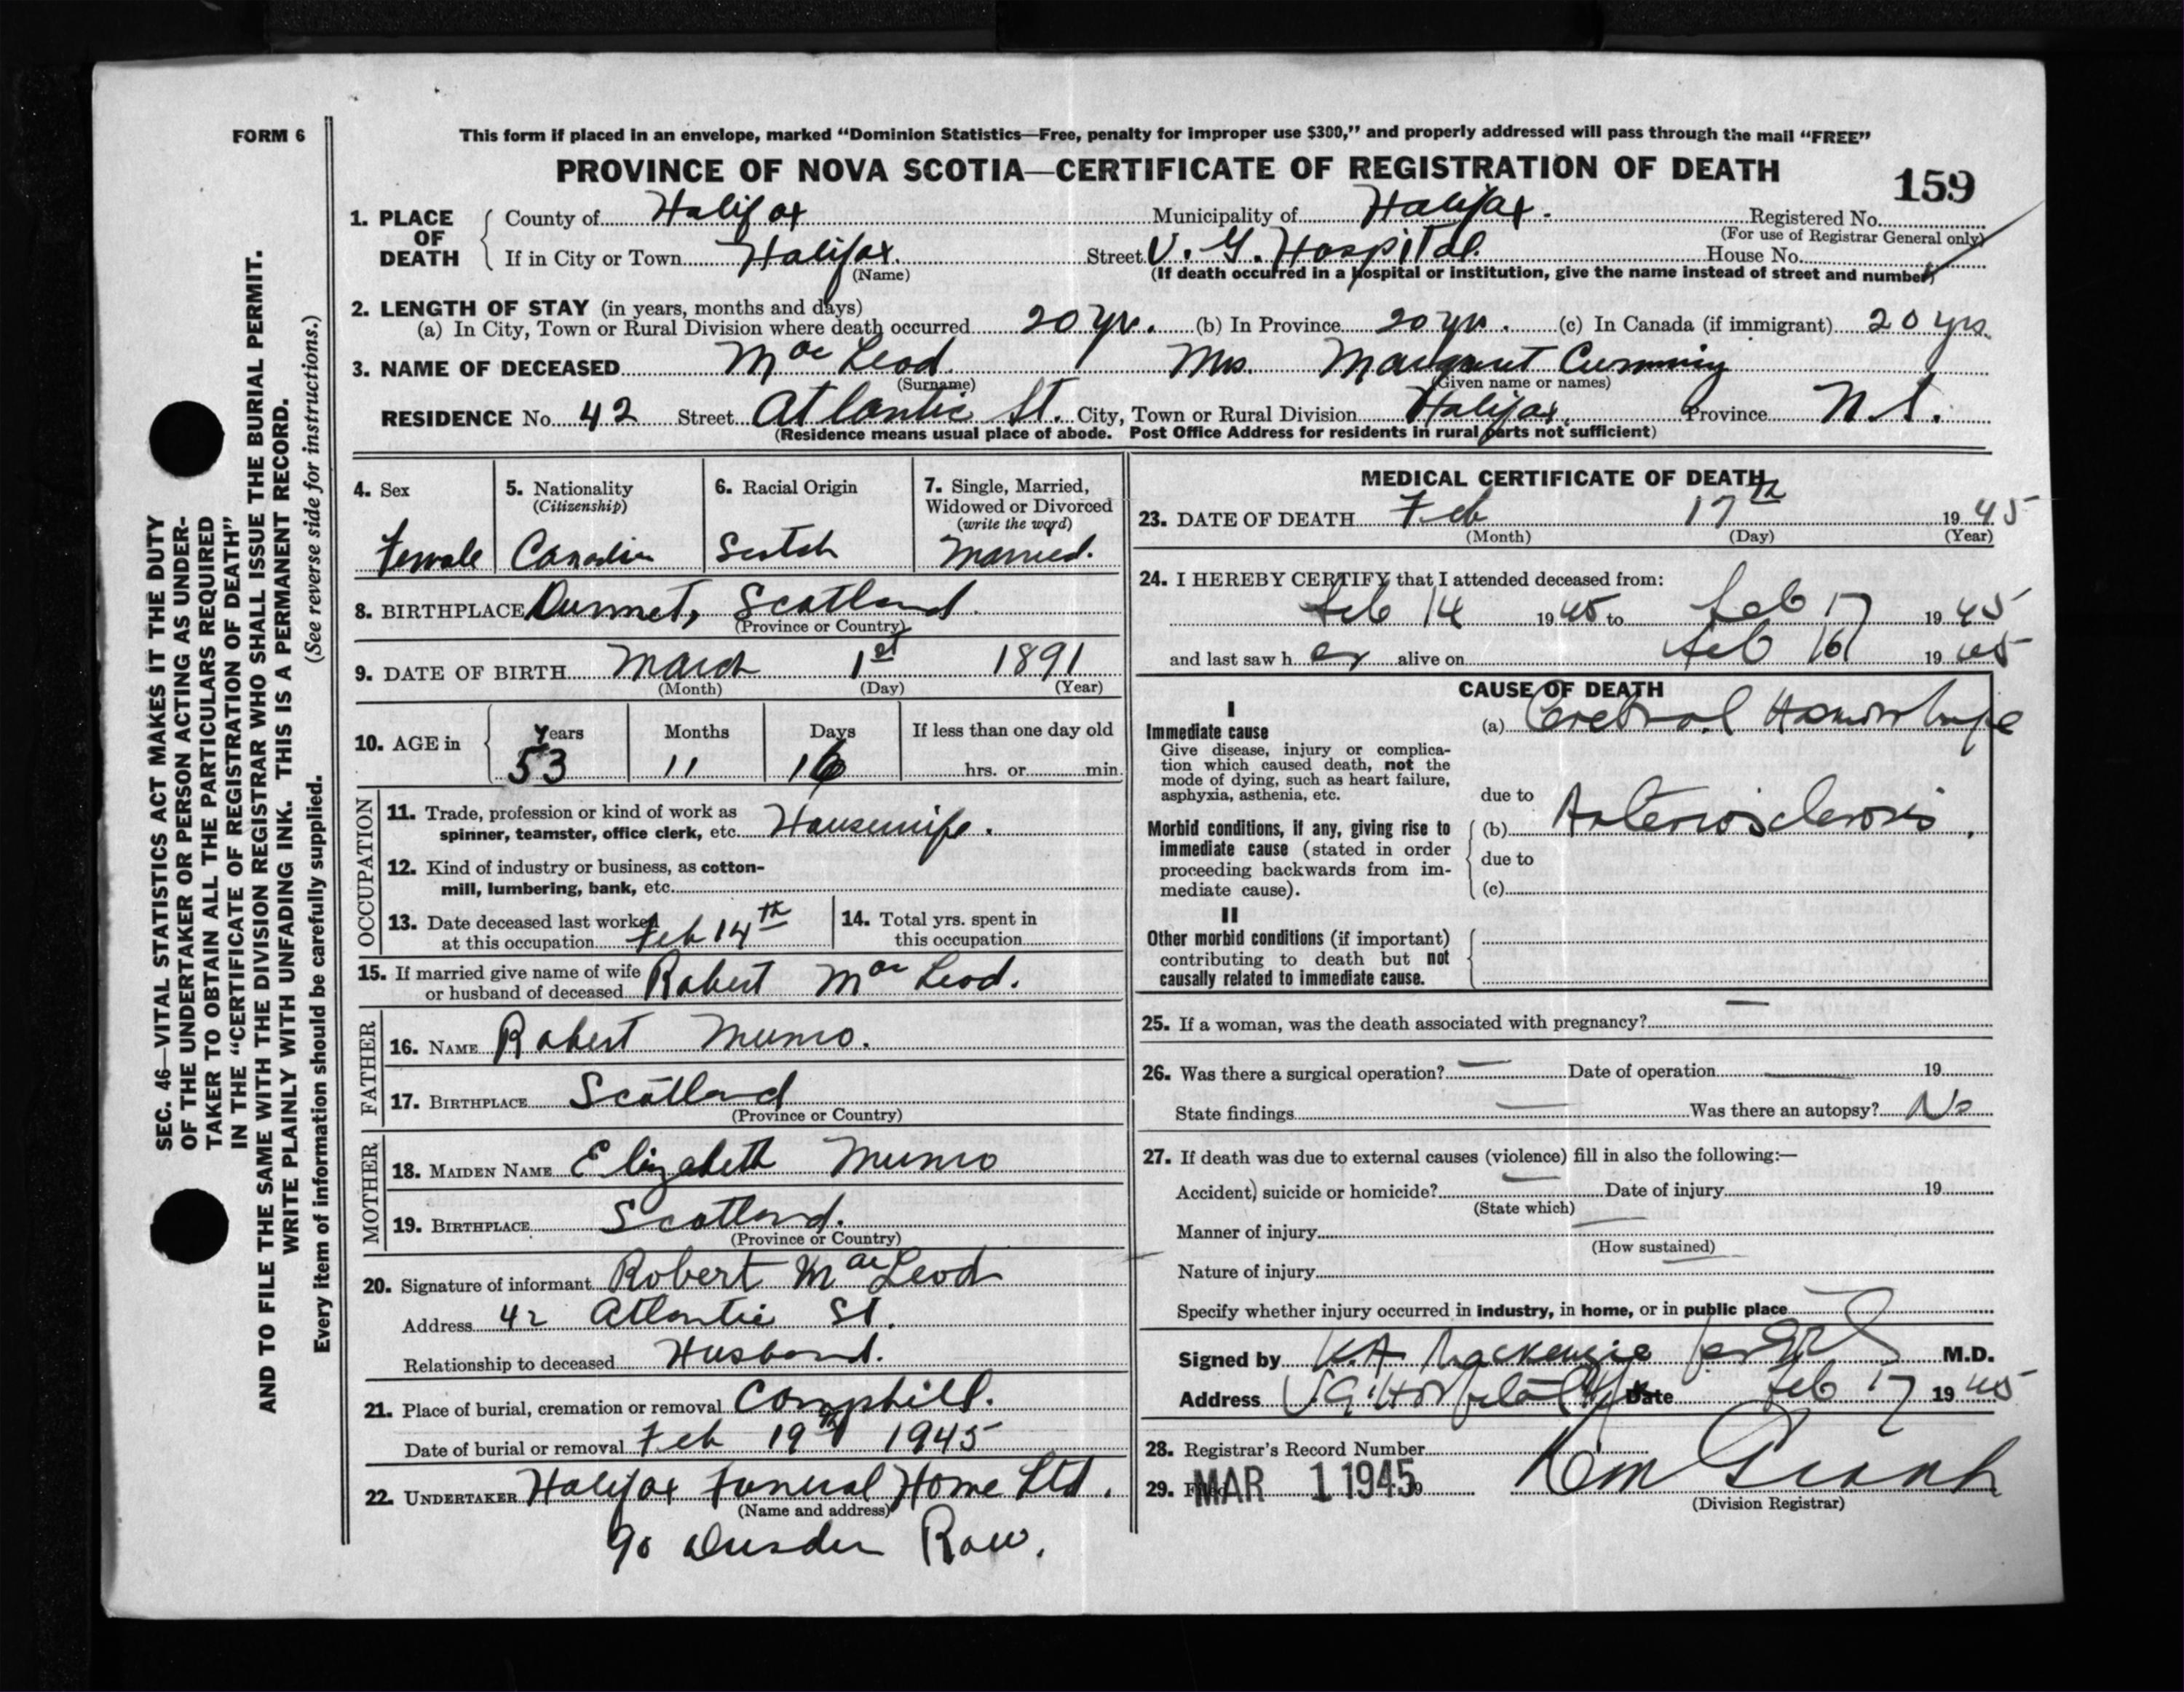 FORM 6
This form if placed in an envelope, marked "Dominion Statistics—Free, penalty for improper use $300," and properly addressed will pass through the mail "FREE"
PROVINCE OF NOVA SCOTIA—CERTIFICATE OF REGISTRATION OF DEATH
159
1. PLACE OF DEATH
County of Halifax Municipality of Halifax. Registered No.
(For use of Registrar General only)
If in City or Town Halifax. Street V. G. Hospital. House No.
(Name) (If death occurred in a hospital or institution, give the name instead of street and number)
2. LENGTH OF STAY (in years, months and days)
(a) In City, Town or Rural Division where death occurred 20 yr. (b) In Province 20 yr. (c) In Canada (if immigrant) 20 yrs
3. NAME OF DECEASED MacLeod Mrs. Margaret Cumming
(Surname) (Given name or names)
RESIDENCE No. 42 Street Atlantic St. City, Town or Rural Division Halifax, Province N.S.
(Residence means usual place of abode. Post Office Address for residents in rural parts not sufficient)
4. Sex
Female
5. Nationality
(Citizenship)
Canadian
6. Racial Origin
Scotch
7. Single, Married,
Widowed or Divorced
(write the word)
Married.
8. BIRTHPLACE Dunnet, Scotland.
(Province or Country)
9. DATE OF BIRTH March 1st 1891
(Month) (Day) (Year)
10. AGE in
Years Months Days If less than one day old
53 11 16 hrs. or min.
OCCUPATION
11. Trade, profession or kind of work as
spinner, teamster, office clerk, etc. Housewife.
12. Kind of industry or business, as cotton-
mill, lumbering, bank, etc.
13. Date deceased last worked
at this occupation Feb 14th
14. Total yrs. spent in
this occupation
15. If married give name of wife
or husband of deceased Robert MacLeod.
FATHER
16. NAME Robert Munro.
17. BIRTHPLACE Scotland
(Province or Country)
MOTHER
18. MAIDEN NAME Elizabeth Munro
19. BIRTHPLACE Scotland.
(Province or Country)
20. Signature of informant Robert MacLeod
Address 42 Atlantic St.
Relationship to deceased Husband.
21. Place of burial, cremation or removal Camphill.
Date of burial or removal Feb 19th 1945
22. UNDERTAKER Halifax Funeral Home Ltd.
(Name and address)
90 Dresden Row.
MEDICAL CERTIFICATE OF DEATH
23. DATE OF DEATH Feb 17th 1945
(Month) (Day) (Year)
24. I HEREBY CERTIFY that I attended deceased from:
Feb 14 1945 to Feb 17 1945
and last saw her alive on Feb 16 1945
CAUSE OF DEATH
I
Immediate cause
Give disease, injury or complica-
tion which caused death, not the
mode of dying, such as heart failure,
asphyxia, asthenia, etc.
(a) Cerebral Haemorrhage
due to
Morbid conditions, if any, giving rise to
immediate cause (stated in order
proceeding backwards from im-
mediate cause).
(b) Arteriosclerosis.
due to
(c)
II
Other morbid conditions (if important)
contributing to death but not
causally related to immediate cause.
25. If a woman, was the death associated with pregnancy? —
26. Was there a surgical operation? — Date of operation — 19
State findings — Was there an autopsy? No
27. If death was due to external causes (violence) fill in also the following:—
Accident, suicide or homicide? — Date of injury 19
(State which)
Manner of injury
(How sustained)
Nature of injury
Specify whether injury occurred in industry, in home, or in public place
Signed by K.A. Mackenzie M.D.
Address V.G. Hospital Date Feb 17 1945
28. Registrar's Record Number
29. MAR 1 1945
(Division Registrar)
SEC. 46—VITAL STATISTICS ACT MAKES IT THE DUTY
OF THE UNDERTAKER OR PERSON ACTING AS UNDER-
TAKER TO OBTAIN ALL THE PARTICULARS REQUIRED
IN THE "CERTIFICATE OF REGISTRATION OF DEATH"
AND TO FILE THE SAME WITH THE DIVISION REGISTRAR WHO SHALL ISSUE THE BURIAL PERMIT.
WRITE PLAINLY WITH UNFADING INK. THIS IS A PERMANENT RECORD.
Every item of information should be carefully supplied. (See reverse side for instructions.)